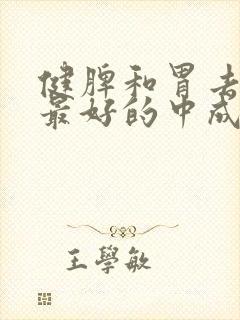 健脾和胃去
最好的中成
王學敏